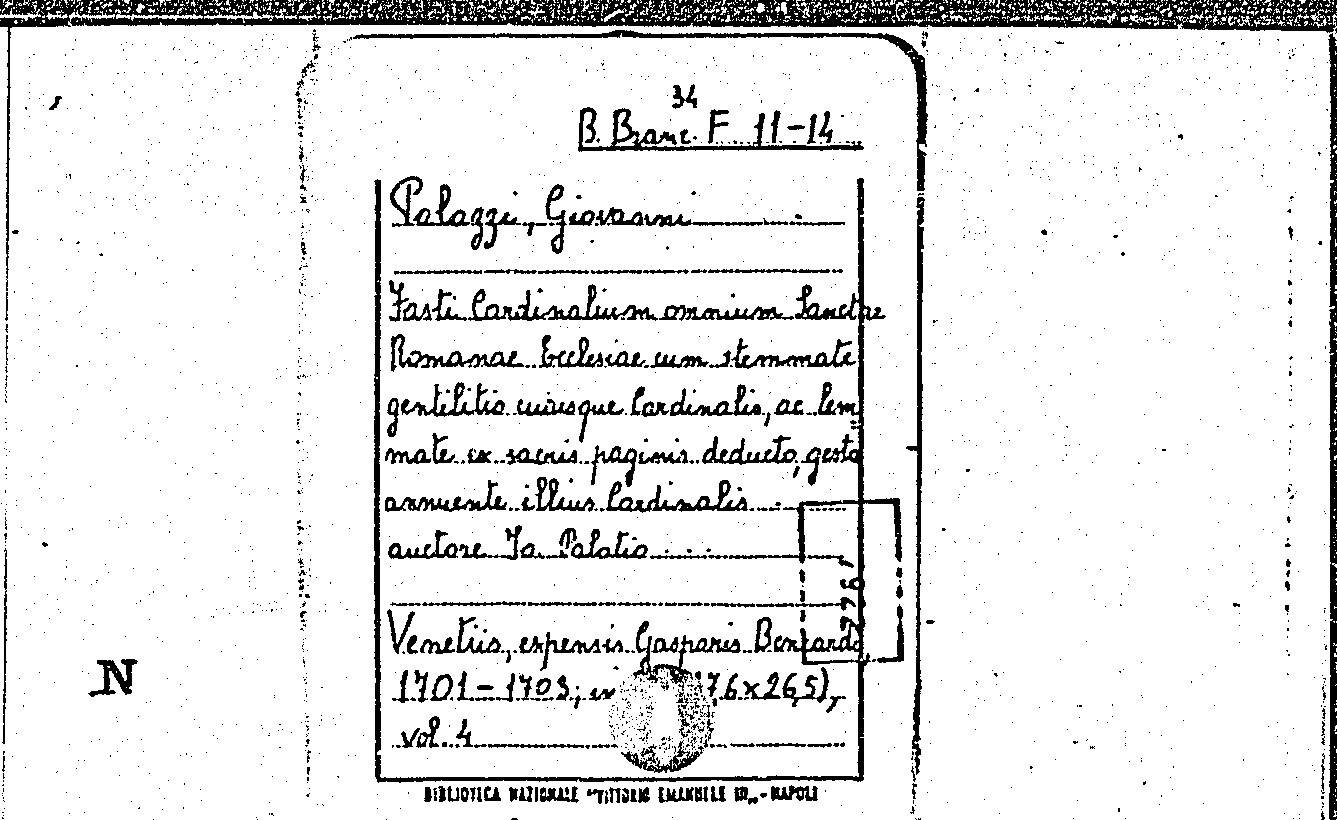 34
B. Branc. F 11-14
Palazzi, Giovanni
Fasti Cardinalium omnium Sanctae
Romanae Ecclesiae cum stemmate
gentilitio cuiusque Cardinalis, ac lem
mate ex sacris paginis deducto, gesta
annuente illius Cardinalis . . .
auctore Ja. Palatio . . .
776
Venetiis, expensis Gasparis Bencardo,
1701-1703; in 7,6x26,5),
vol. 4
N
BIBLIOTECA NAZIONALE "VITTORIO EMANUELE III" - NAPOLI